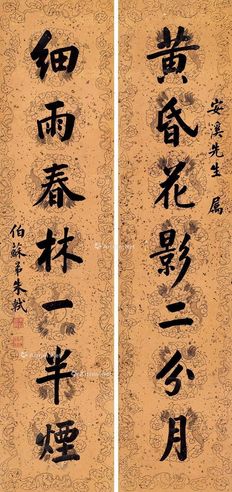 安溪先生属
黄昏花影二分月
细雨春林一半煙
伯蘇弟朱軾